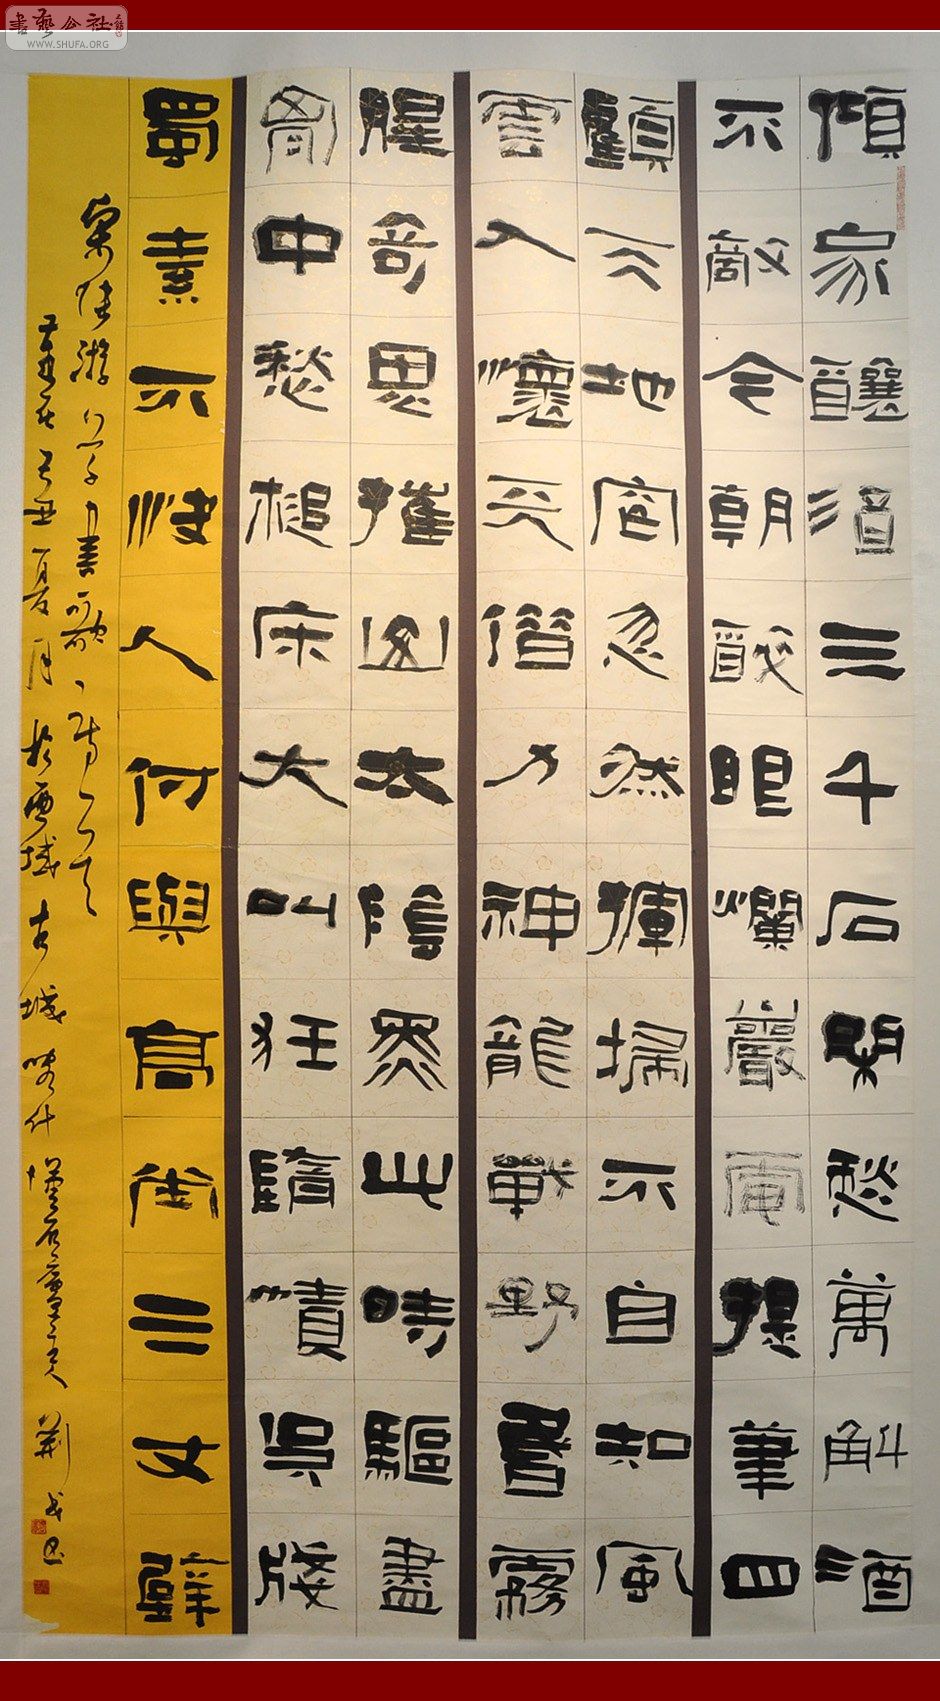 書藝公社
WWW.SHUFA.ORG
傾家釀酒三千石閑愁萬斛酒
不敵今朝醉眼爛巖電提筆四
顧天地窄忽然揮掃不自知風
雲入懷天借力神龍戰野昏霧
腥奇鬼摧山太陰黑此時驅盡
胸中愁槌床大叫狂墮幘吳牋
蜀素不快人付與高堂三丈壁
錄陸游草書歌
己丑夏月於西域古城喀什